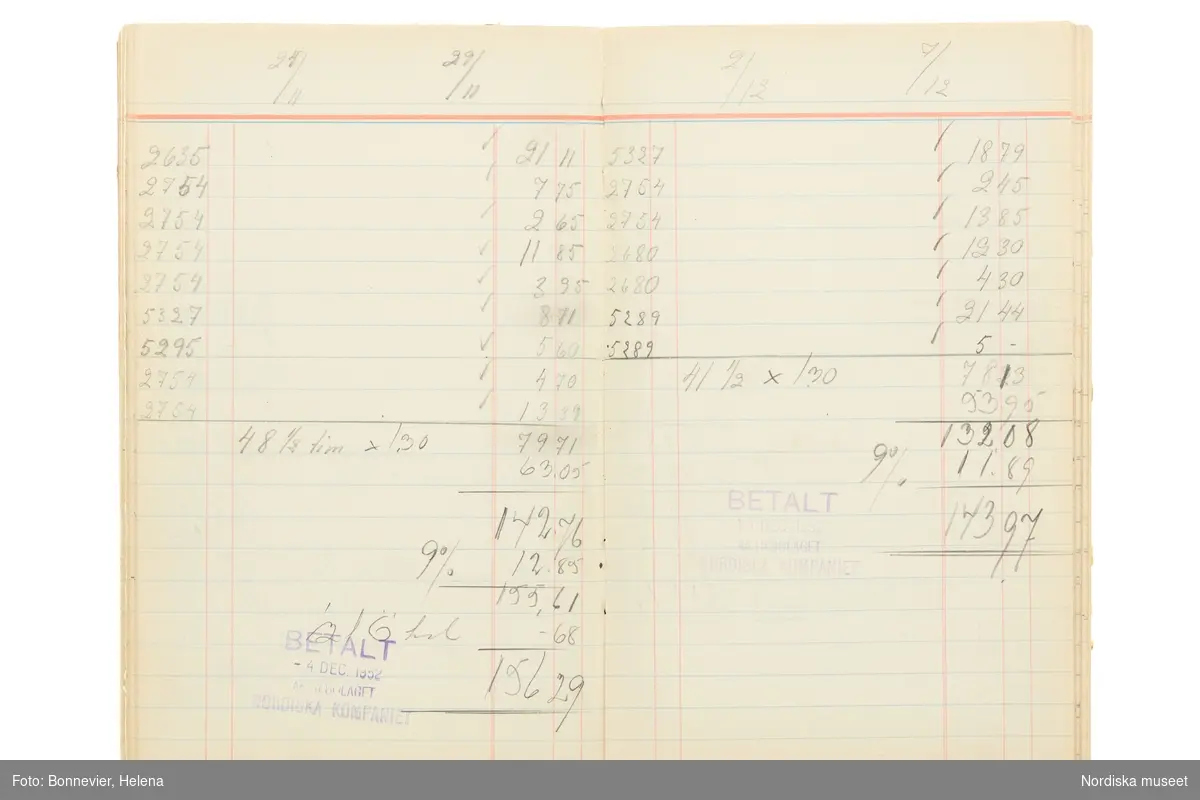 29/11
2635 ✓ 21 11
2754 ✓ 7 75
2754 ✓ 2 65
2754 ✓ 11 85
2754 ✓ 3 95
5327 ✓ 8 71
5295 ✓ 5 60
2754 ✓ 4 70
2754 ✓ 13 39
48 1/2 tim x 1.30 79 71
63.05
142.76
9% 12.85
155,61
-68
BETALT
- 4 DEC. 1952
NORDISKA KOMPANIET
156 29
2/12 7/12
5327 ✓ 18 79
2754 ✓ 2 45
2754 ✓ 13 85
2680 ✓ 12 30
2680 ✓ 4 30
5289 ✓ 21 44
5289 ✓ 5 -
41 1/2 x 1.30 78 13
53 95
132 08
9% 11.89
143 97
BETALT
NORDISKA KOMPANIET
Foto: Bonnevier, Helena
Nordiska museet